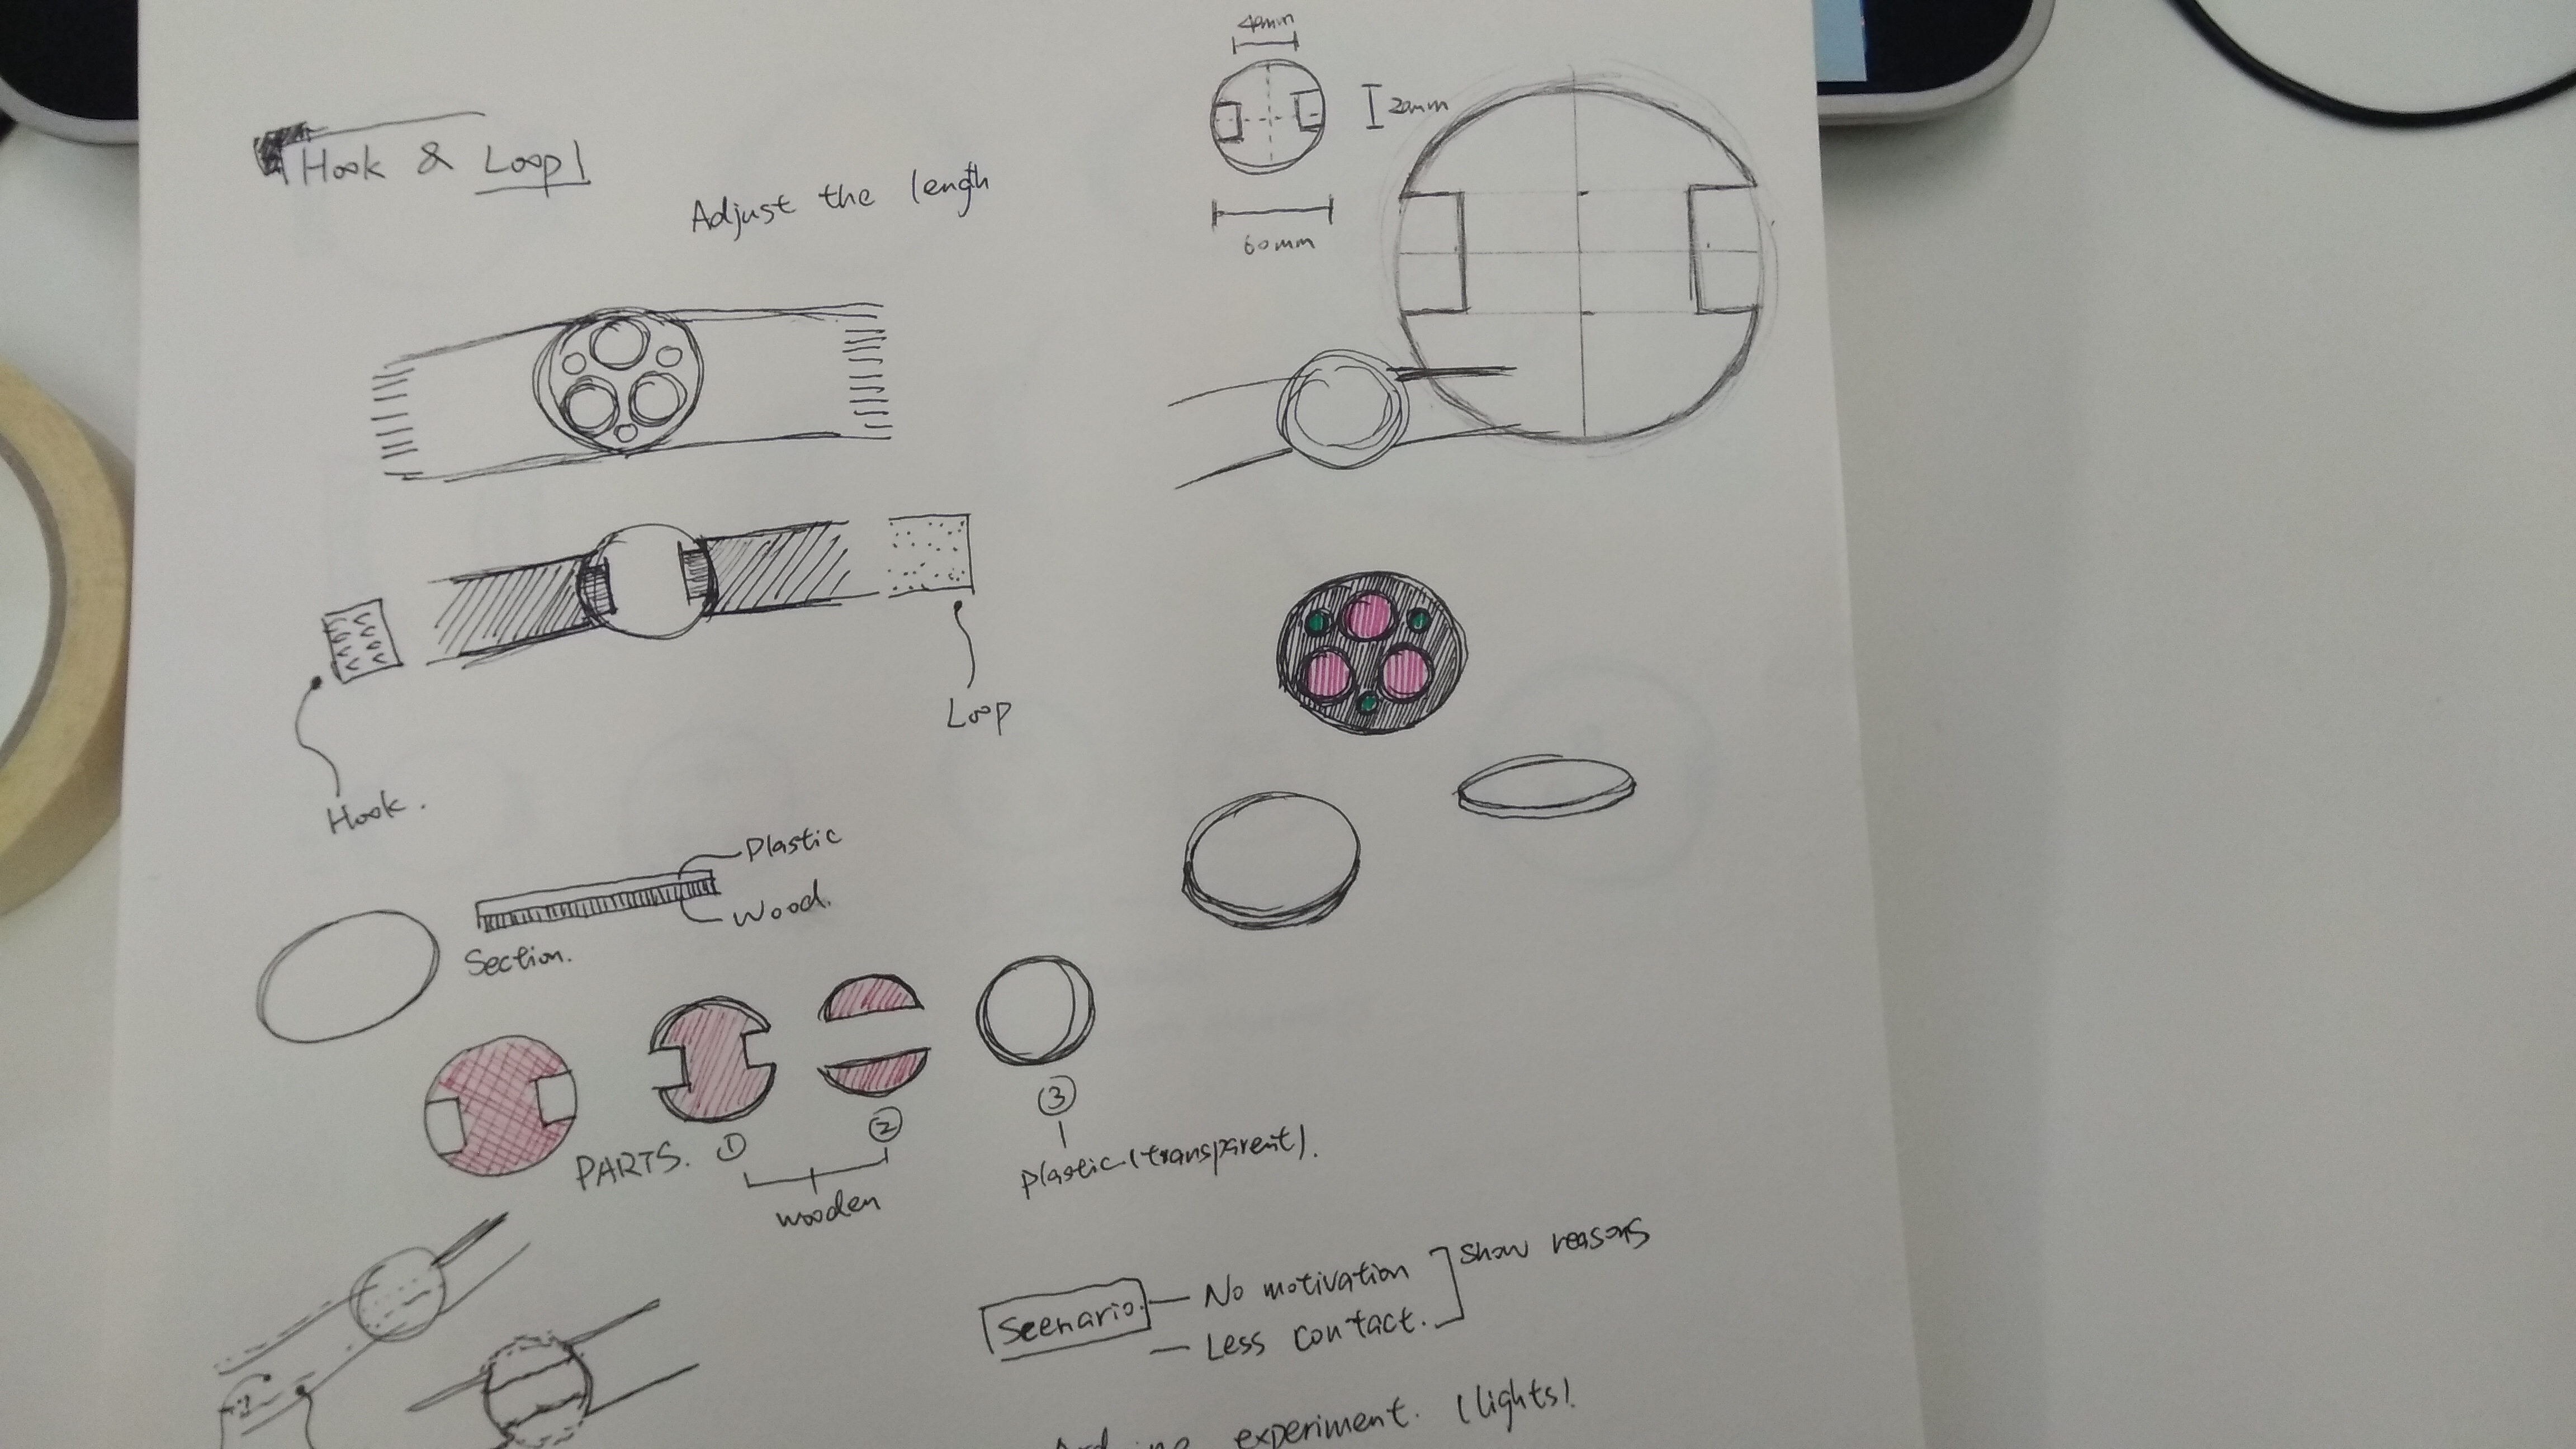 40mm
20mm
60mm
Hook & Loop
Adjust the length
Loop
Hook.
Plastic
Wood.
Section.
PARTS. ① ② ③
wooden
plastic (transparent).
Scenario. — No motivation
— Less contact.
show reasons
experiment. (lights).